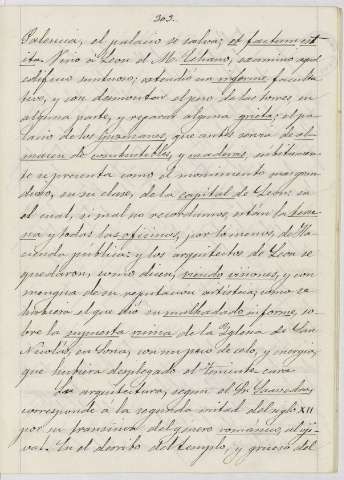 303.
Palencia, el palacio se salva; et factum est
ita. Vino á Leon el M. Lebrero, examinó aquel
edificio suntuoso; estendió un informe faculta-
tivo, y con desmontar el peso de las torres en
alguna parte, y reparar alguna grieta; el pa-
lacio de los Guzmanes, que antes servia de al-
macen de combustibles, y maderas, súbitamen-
te se presenta como el monumento mas gran-
dioso, en su clase, de la capital de Leon: en
el cual, si mal no recordamos, están la tesore-
ria y todas las oficinas, por lo menos, de Ha-
cienda pública; y los arquitectos de Leon se
quedaron, como dicen, viendo visiones, y con
mengua de su reputacion artística; como se
hubiera el que dió su malhadado informe so-
bre la supuesta ruina de la Iglesia de San
Nicolás, en Soria, con un poco de celo, y energia,
que hubiera desplegado el Teniente cura
La arquitectura, segun el Sr. Saavedra,
corresponde á la segunda mitad del siglo XII
por su transicion del género romanico al oji-
val. En el derribo del templo, y grueso del